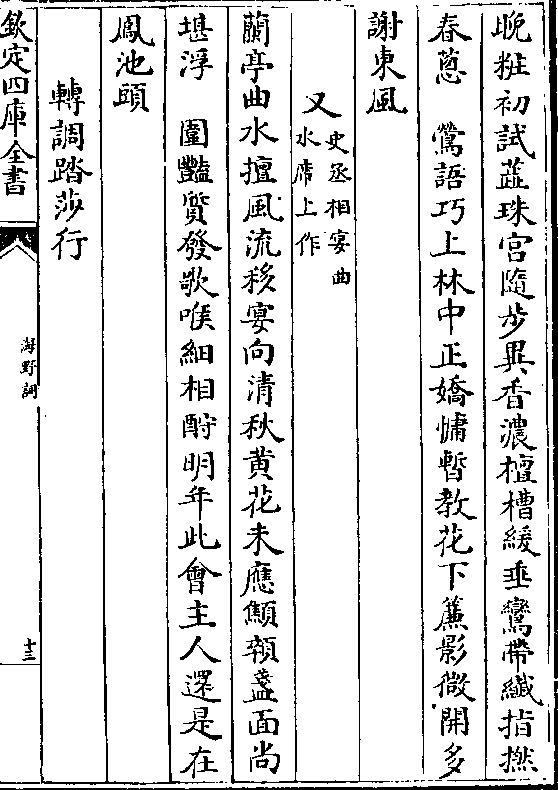 晚粧初試蘂珠宮隨步異香濃檀槽緩垂鸞帶纖指撚
春葱　鶯語巧上林中正嬌慵暫教花下簾影微開多
謝東風
又
史丞相宴曲
水席上作
蘭亭曲水擅風流移宴向清秋黄花未應顦顇盞面尚
堪浮　圍豔質發歌喉細相酧明年此會主人還是在
鳳池頭
轉調踏莎行
欽定四庫全書
海野詞
十三